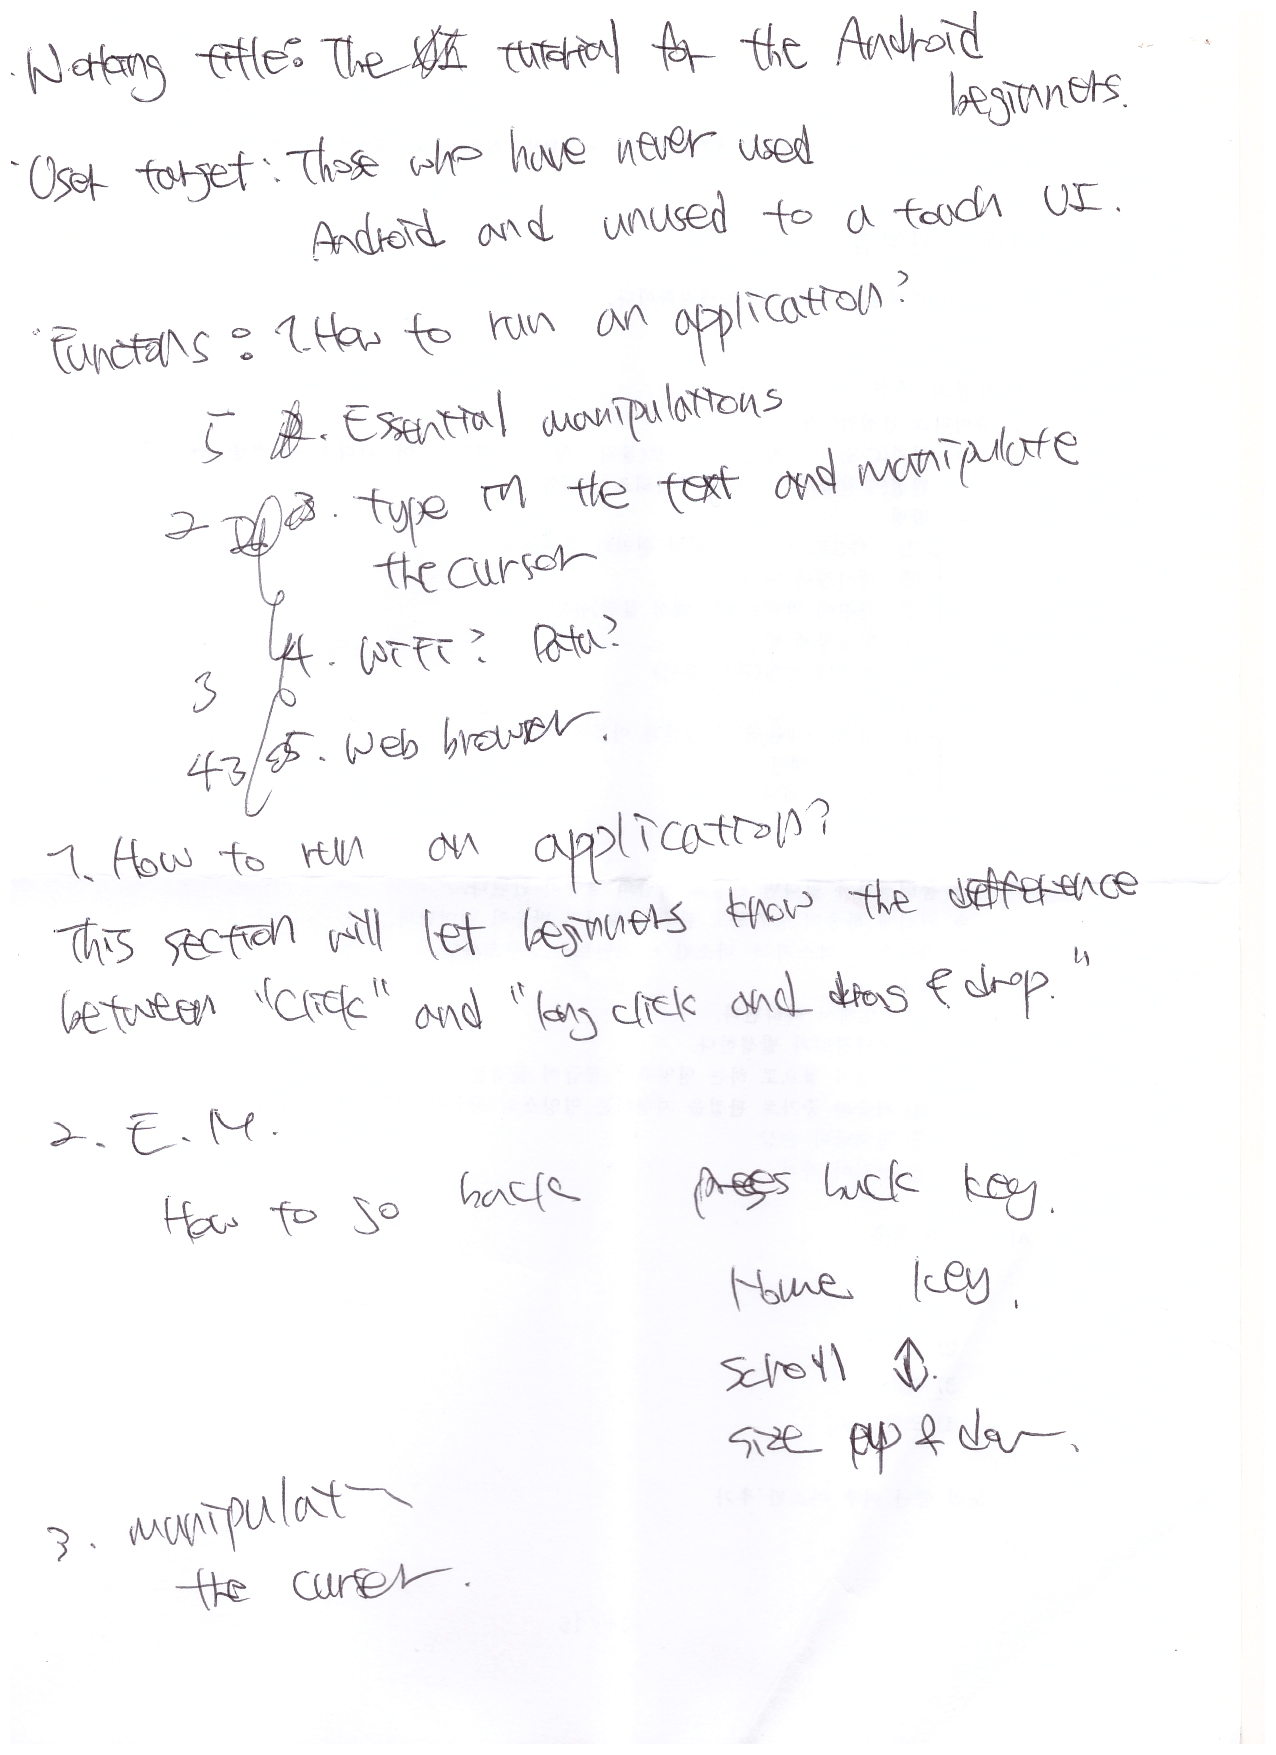 · Working title: The UI tutorial for the Android
beginners.
· User target: Those who have never used
Android and unused to a touch UI.
· Functions: 1. How to run an application?
5 . Essential manipulations
2 3. type in the text and manipulate
the cursor
4. WiFi? Data?
3
43 5. Web browser.
1. How to run an application?
This section will let beginners know the difference
between "click" and "long click and drag & drop."
2. E. M.
How to go back press back key.
Home key.
scroll ↕.
size up & down.
3. manipulat
the cursor.